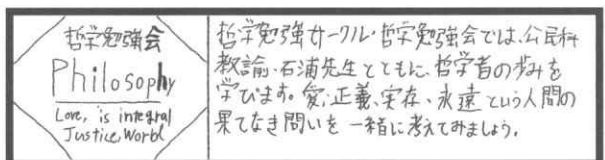 哲学勉強会
Philosophy
Love, is integral
Justice, World
哲学勉強サークル・哲学勉強会では、公民科
教諭・石浦先生とともに、哲学者の歩みを
学びます。愛、正義、実存、永遠という人間の
果てなき問いを一緒に考えてみましょう。